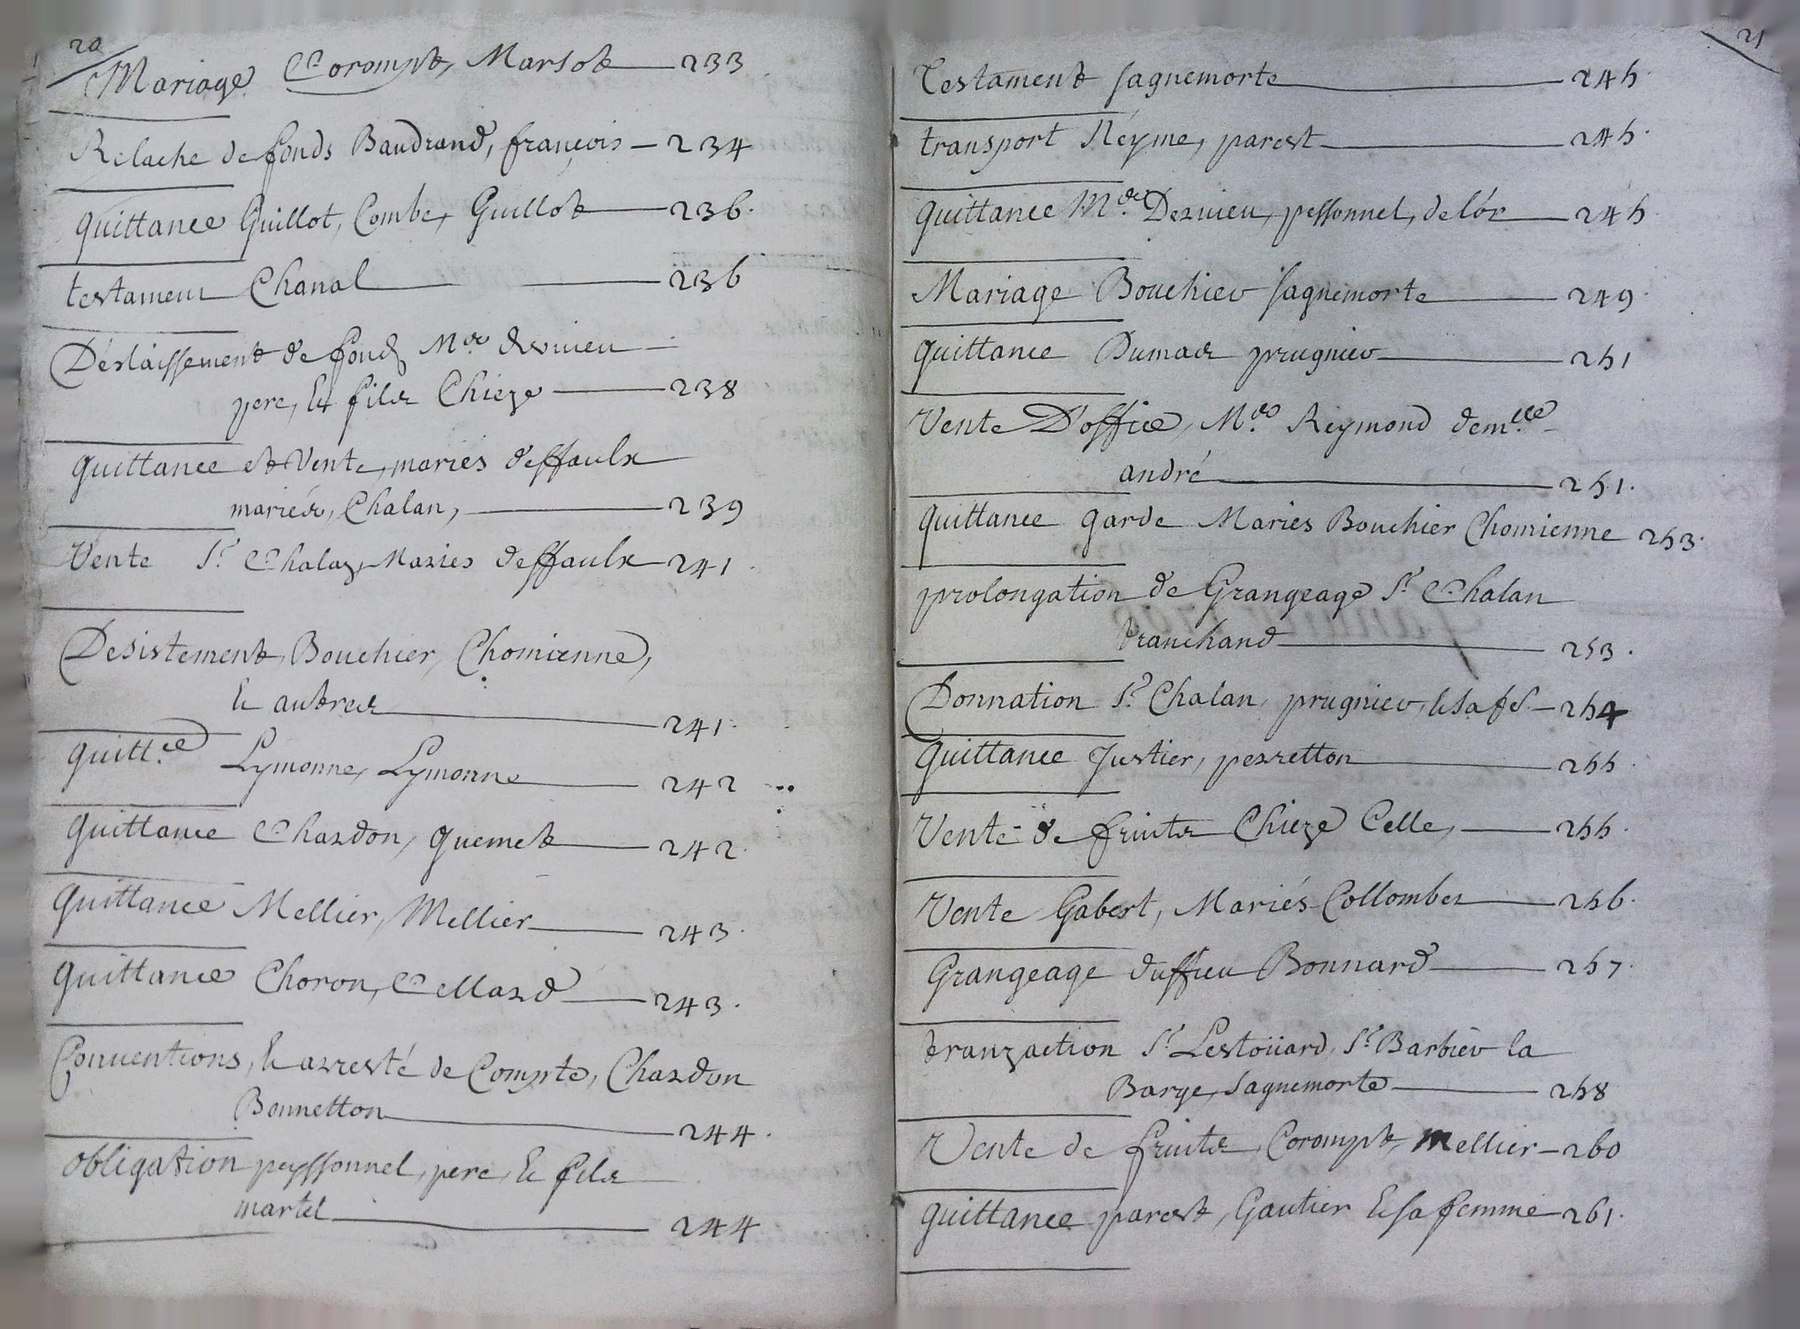 20
Mariage Corompt, Marsot 233
Relache de fonds Baudrand, françois 234
quittance Guillot, Combe, Guillot 236.
testament Chanal 236
Déslaissement de fonds Mre desvieu
pere, et fils Chieze 238
quittance et Vente, mariés deffaulx
mariés, Chalan, 239
Vente Sr. Chalan, Mariés deffaulx 241.
Desistement Bouchier, Chomienne,
et autres 241.
quittce Lymonne, Lymonne 242
quittance Chardon, quemet 242.
quittance Mellier, Mellier 243.
quittance Choron, Cellard 243.
Conventions, et arresté de Compte, Chardon
Bonnetton 244.
obligation peyssonnel, pere, et fils
martel 244
21
Testament sagnemorte 245.
transport Néyme, parest 245.
quittance Mre Desvieu, pessonnel, delór 245.
Mariage Bouchier sagnemorte 249.
quittance Dumas prugnier 251
Vente D'office, Mre Reymond demlle
andré 251.
quittance garde Mariés Bouchier Chomienne 253.
prolongation de Grangeage Sr Chalan
tranchand 253.
Donnation Sr. Chalan, prugnier, et sa fe. 254
quittance Justier, perretton 255.
Vente de fruits Chieze Celle, 255.
Vente Gabert, Mariés Collombet 256.
Grangeage duffieu Bonnard 257.
tranzaction Sr. Lestoüard, Sr. Barbier la
Barge, sagnemorte 258
Vente de fruits, Corompt, Mellier 260
quittance parest, Gautier et sa femme 261.